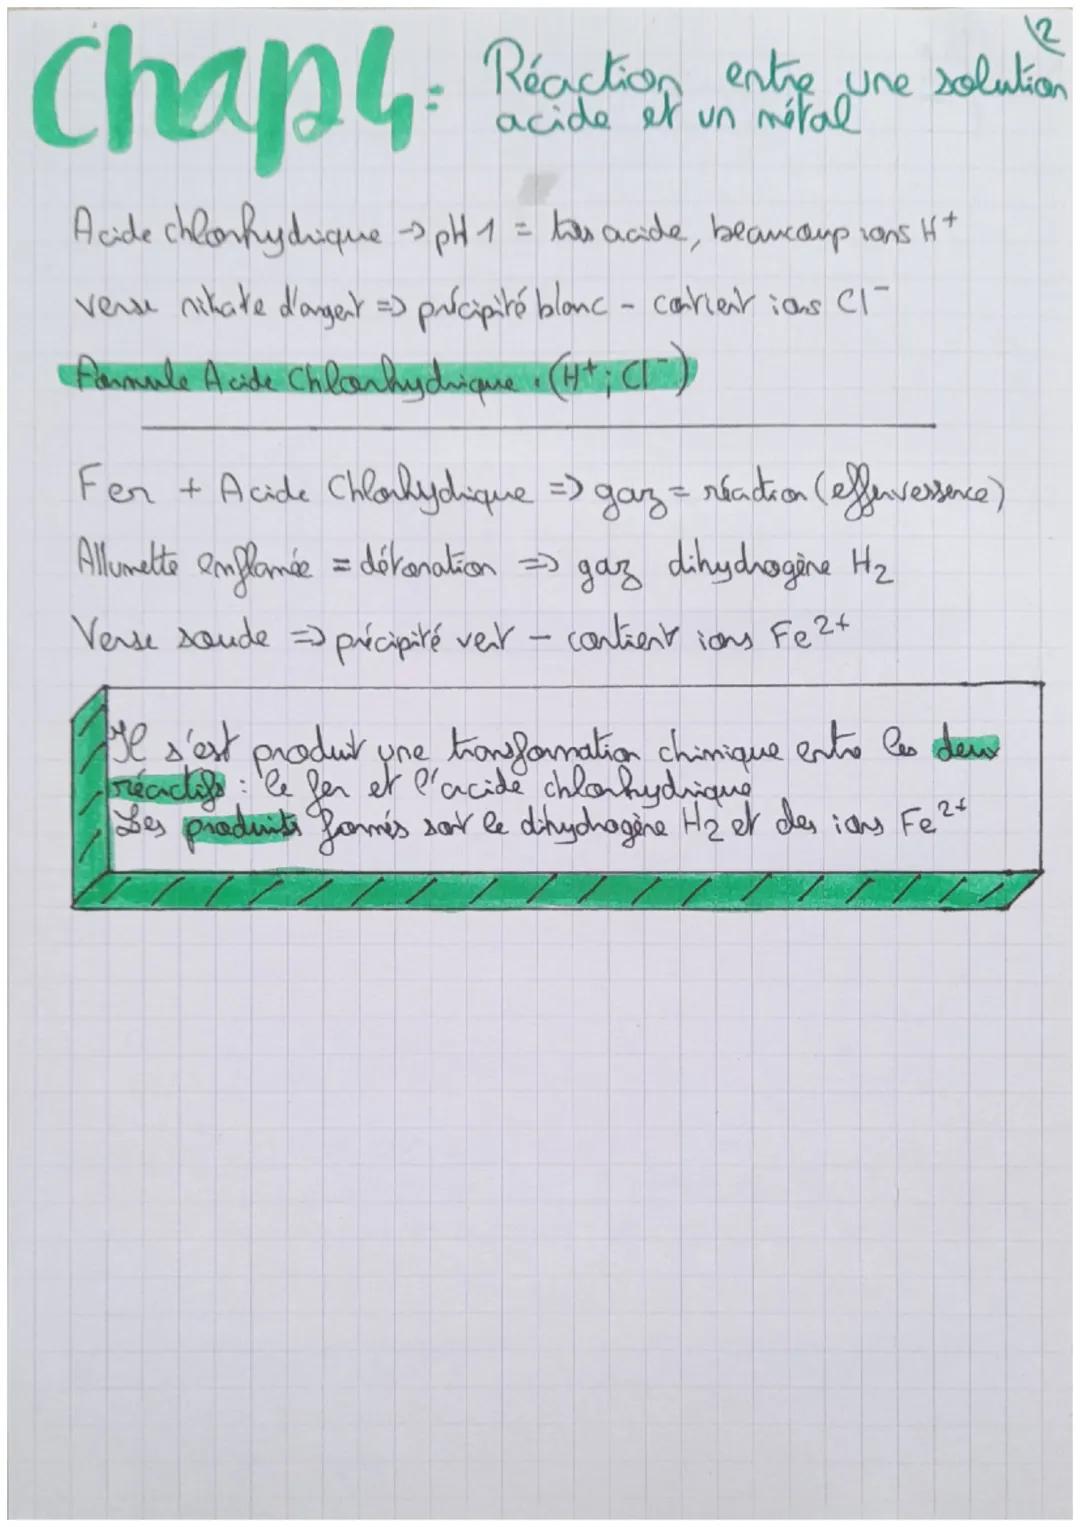 12
Chap 4: Réaction entre une solution
acide et un métal
Acide chlorhydrique → pH 1 = très acide, beaucoup ions H⁺
verse nitrate d'argent => précipité blanc - contient ions Cl⁻
Formule Acide Chlorhydrique : (H⁺ ; Cl⁻)
Fer + Acide Chlorhydrique => gaz = réaction (effervessence)
Allumette enflamée = détonation => gaz dihydrogène H₂
Verse soude => précipité vert - contient ions Fe²⁺
Il s'est produit une transformation chimique entre les deux
réactifs : le fer et l'acide chlorhydrique
Les produits formés sont le dihydrogène H₂ et des ions Fe²⁺